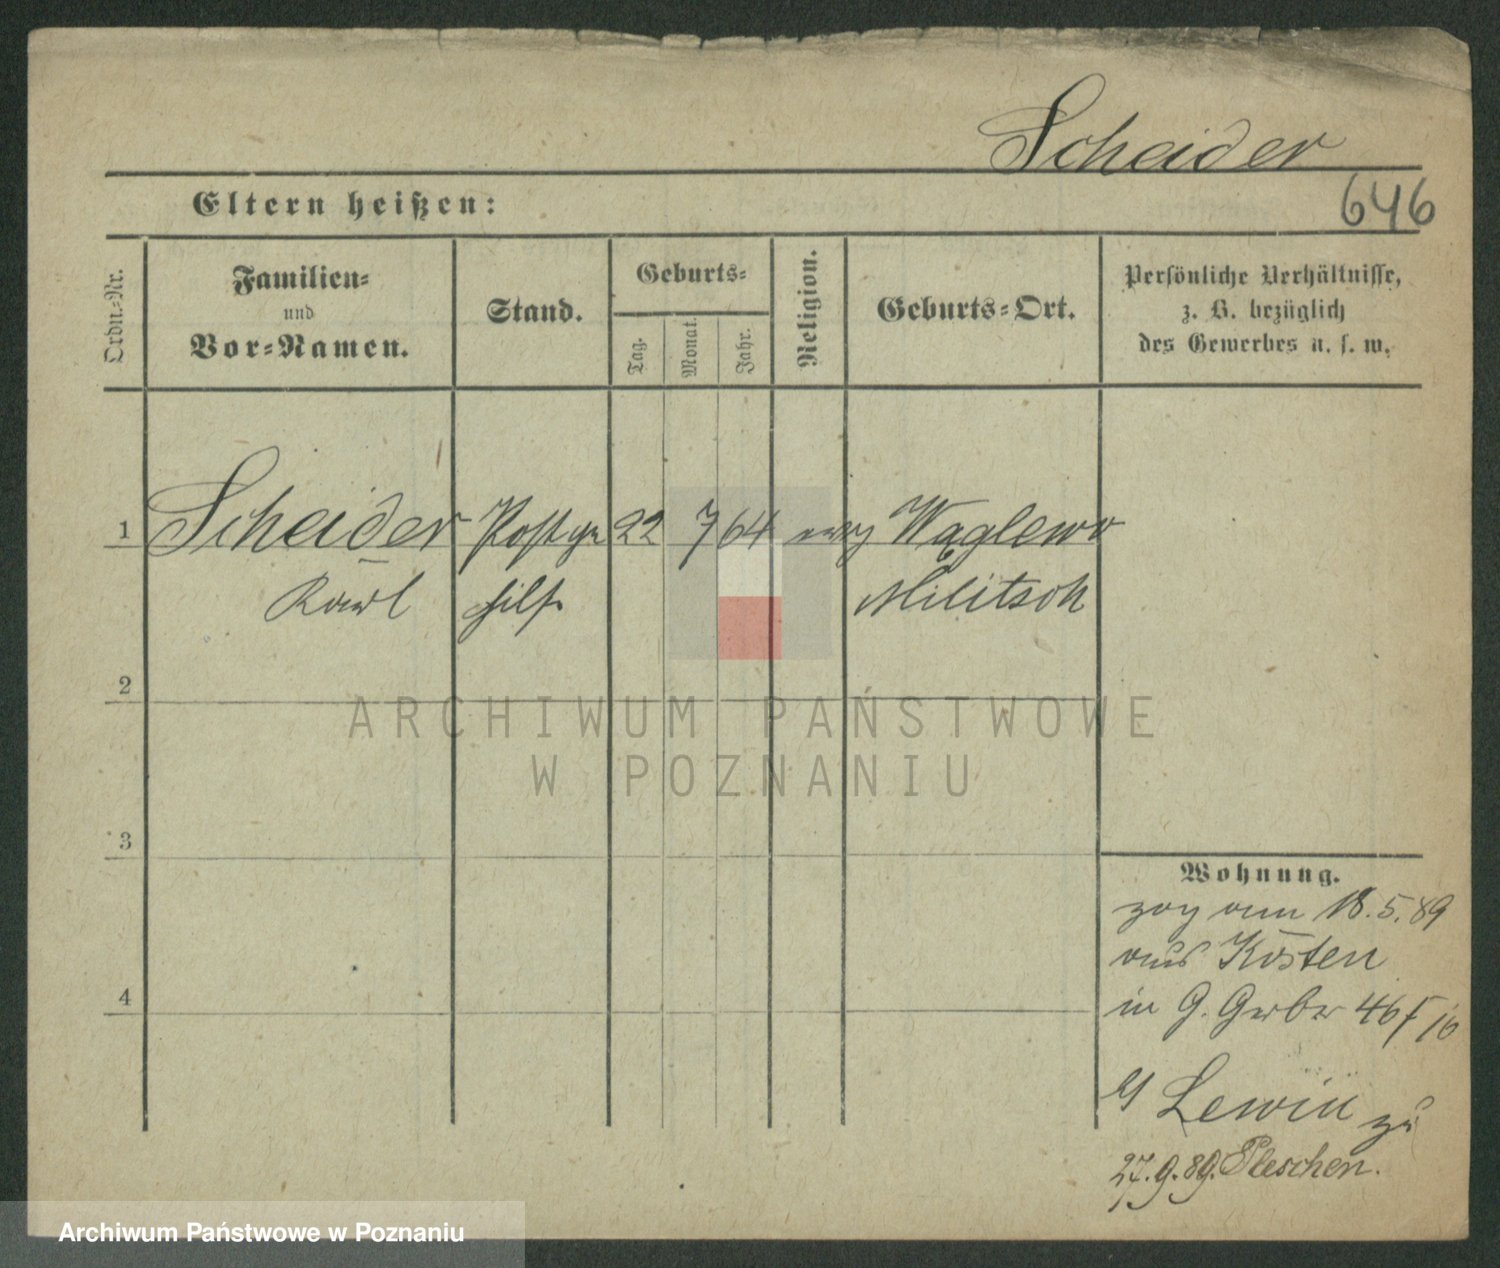 Scheider
646
Eltern heißen:
Ordn.-Nr.
Familien-
und
Vor-Namen.
Stand.
Geburts-
Tag.
Monat.
Jahr.
Religion.
Geburts-Ort.
Persönliche Verhältnisse,
z. B. bezüglich
des Gewerbes u. s. w.
1 Scheider Postge 22 7 64 evg Waglewo
Karl hilf Militsch
2
ARCHIWUM PAŃSTWOWE
W POZNANIU
3
Wohnung.
zog am 18.5.89
aus Kosten
in G. Gerber 46
4
Lewin zu
27.9.89. Pleschen.
Archiwum Państwowe w Poznaniu